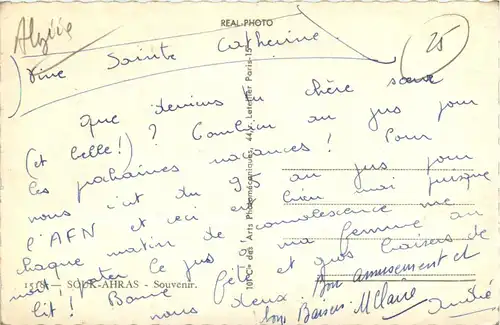 REAL-PHOTO
Algérie
25
Vive Sainte Catherine
que deviens tu chère sœur
(et belle!) ? Combien au jus pour
les prochaines vacances ! Pour
nous c'est du 99 au jus pour
l'AFN et ceci est bien mai puisque
chaque matin de convalescence me
voit porter le jus à ma femme au
lit ! Bonne fête et gros baisers de
nous deux.
Bon amusement et
bons Baisers. MClaire
André
SOUK-AHRAS - Souvenir.
"C" des Arts Photomécaniques, 44, r. Letellier Paris-15